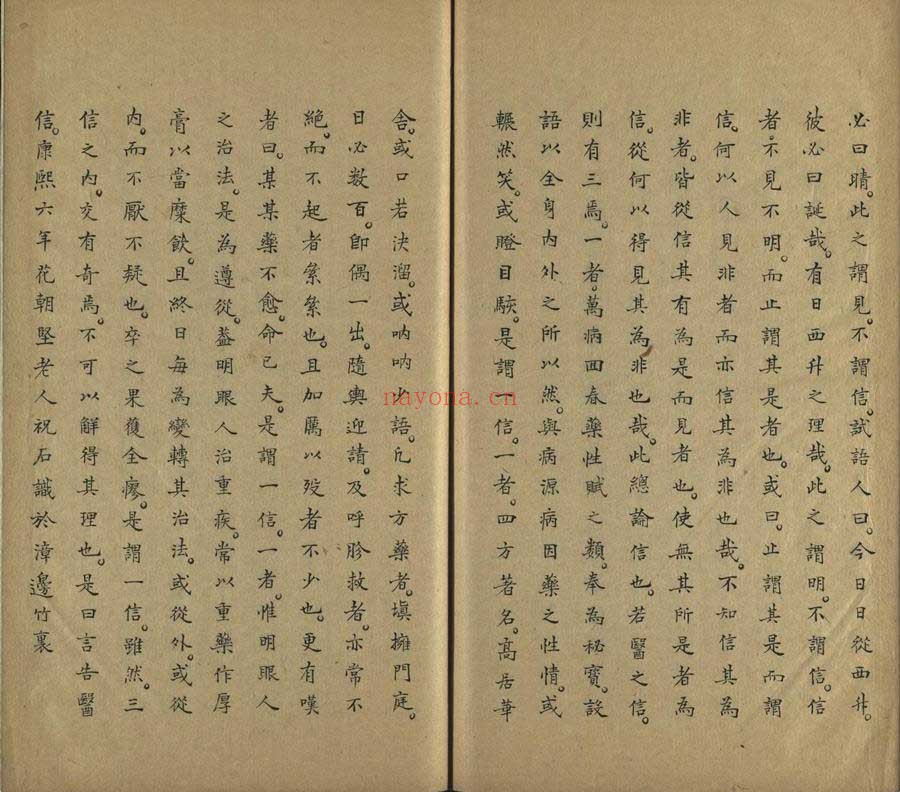 必曰晴。此之謂見。不謂信。試語人曰。今日日從西升。
彼必曰誕哉。有日西升之理哉。此之謂明。不謂信。信
者。不見不明。而止謂其是者也。或曰。止謂其是而謂
信。何以人見非者而亦信其為非也哉。不知信其為
非者。皆從信其有為是而見者也。使無其所是者為
信。從何以得見其為非也哉。此總論信也。若醫之信。
則有三焉。一者。萬病回春藥性賦之類。奉為秘寶。設
語以全身內外之所以然。與病源病因藥之性情。或
輾然笑。或瞪目駭。是謂一信。一者。四方著名。高居華
舍。或口若決溜。或吶吶少語。凡求方藥者。塡擁門庭。
日必數百。卽偶一出。隨輿迎請。及呼胗救者。亦常不
絕。而不起者纍纍也。且加厲以歿者不少也。更有嘆
者曰。某某藥不愈。命已夫。是謂一信。一者。惟明眼人
之治法。是為遵從。葢明眼人治重疾。常以重藥作厚
膏以當糜飲。且終日每為變轉其治法。或從外。或從
內。而不厭不疑也。卒之果獲全瘳。是謂一信。雖然。三
信之內。交有奇焉。不可以解得其理也。是曰言告醫
信。康熙六年花朝堅老人祝石識於漳邊竹裏
nayona.cn